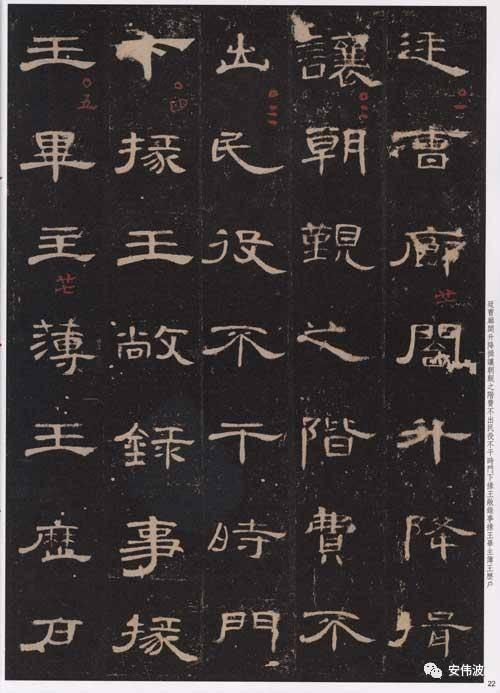 廷曹廊閤升降揖
讓朝覲之階費不
出民役不干時門
下掾王敞錄事掾
王畢主薄王歷户
○一
○二
○三
○四
○五
廷曹廊閤升降揖讓朝覲之階費不出民役不干時門下掾王敞錄事掾王畢主簿王歷户
安伟波
22